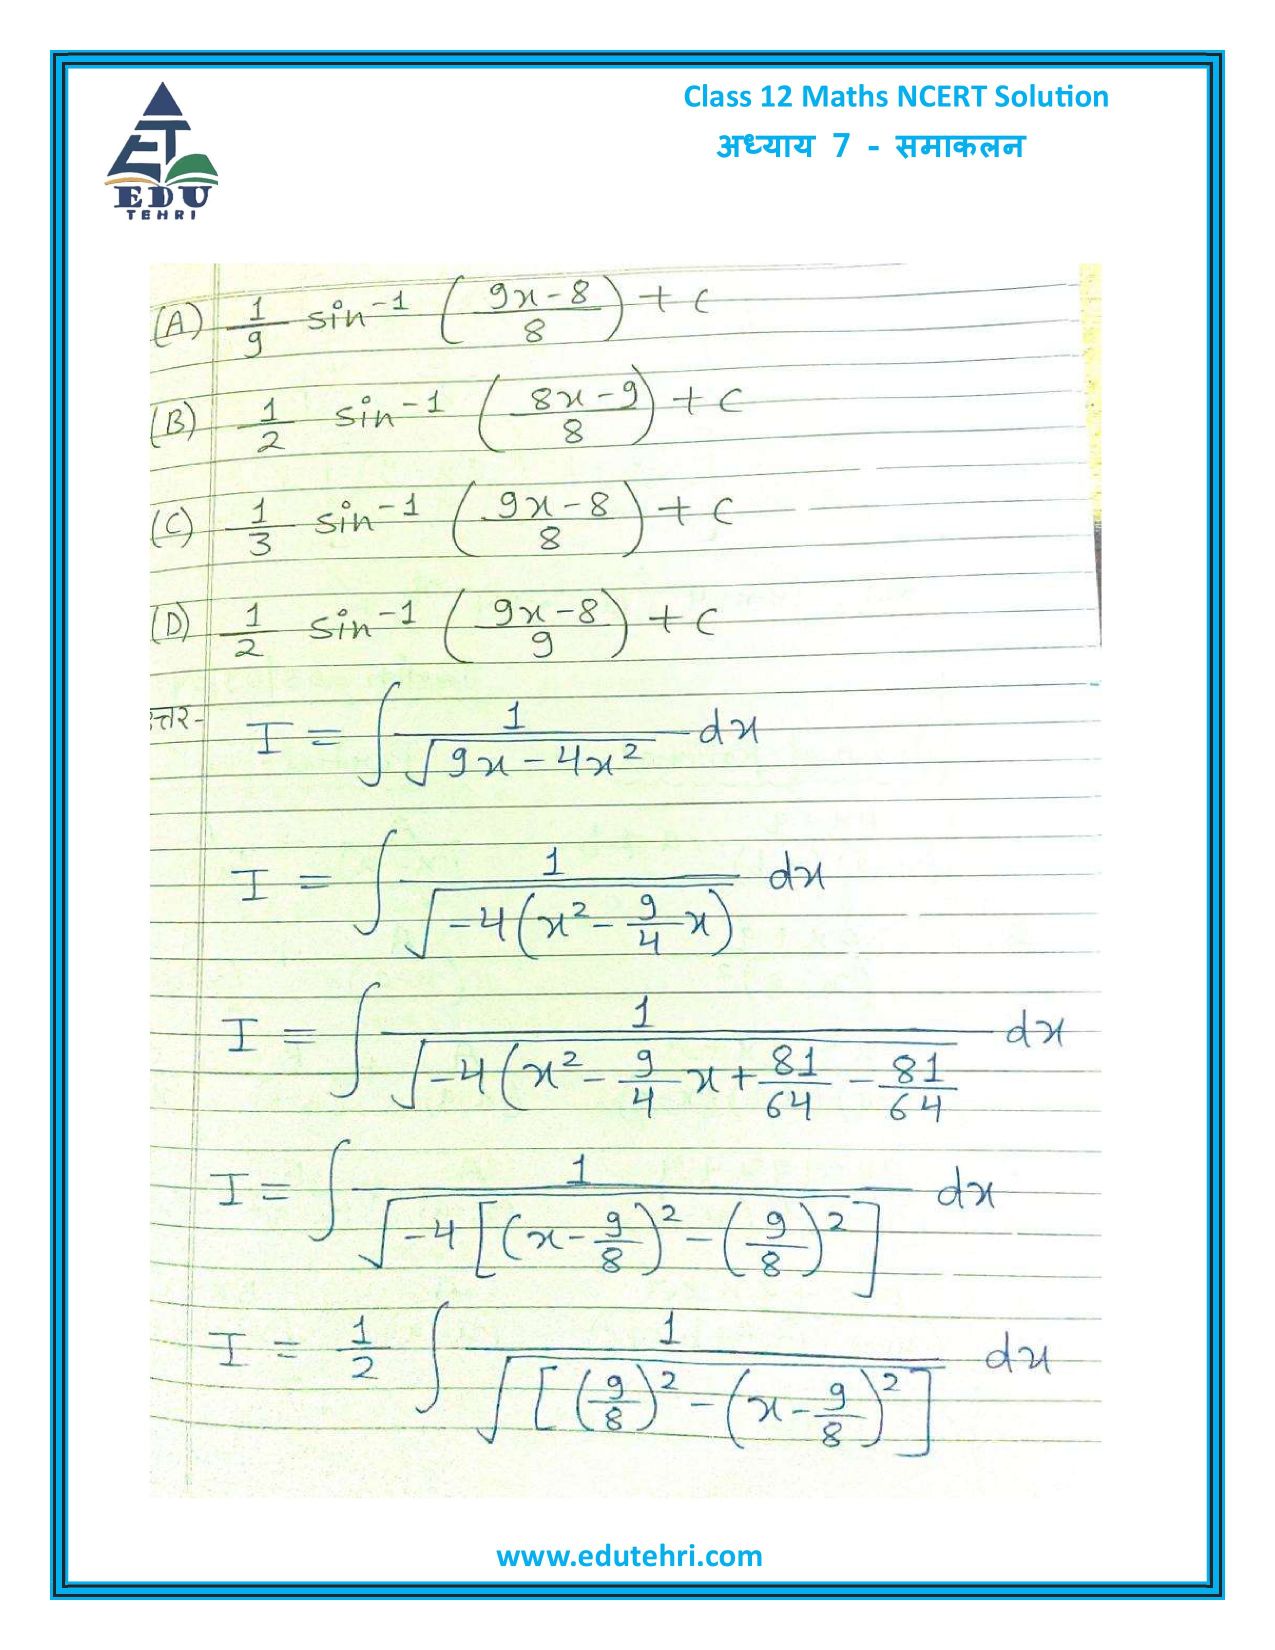 Class 12 Maths NCERT Solution
अध्याय 7 - समाकलन
EDU
TEHRI
(A) 1/9 sin⁻¹ ((9x-8)/8) + c
(B) 1/2 sin⁻¹ ((8x-9)/8) + c
(C) 1/3 sin⁻¹ ((9x-8)/8) + c
(D) 1/2 sin⁻¹ ((9x-8)/9) + c
उत्तर- I = ∫ 1/√(9x-4x²) dx
I = ∫ 1/√(-4(x² - 9/4 x)) dx
I = ∫ 1/√(-4(x² - 9/4 x + 81/64 - 81/64 dx
I = ∫ 1/√(-4[(x - 9/8)² - (9/8)²]) dx
I = 1/2 ∫ 1/√([(9/8)² - (x - 9/8)²]) dx
www.edutehri.com